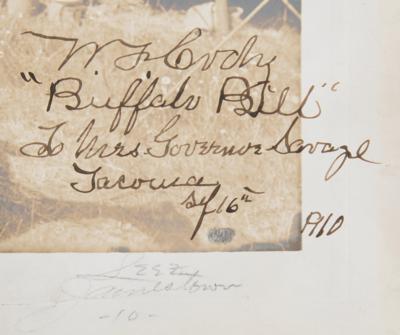 W F Cody
"Buffalo Bill"
To Mrs Governor Savage
Tacoma
16th
1910
Jamestown
-10-